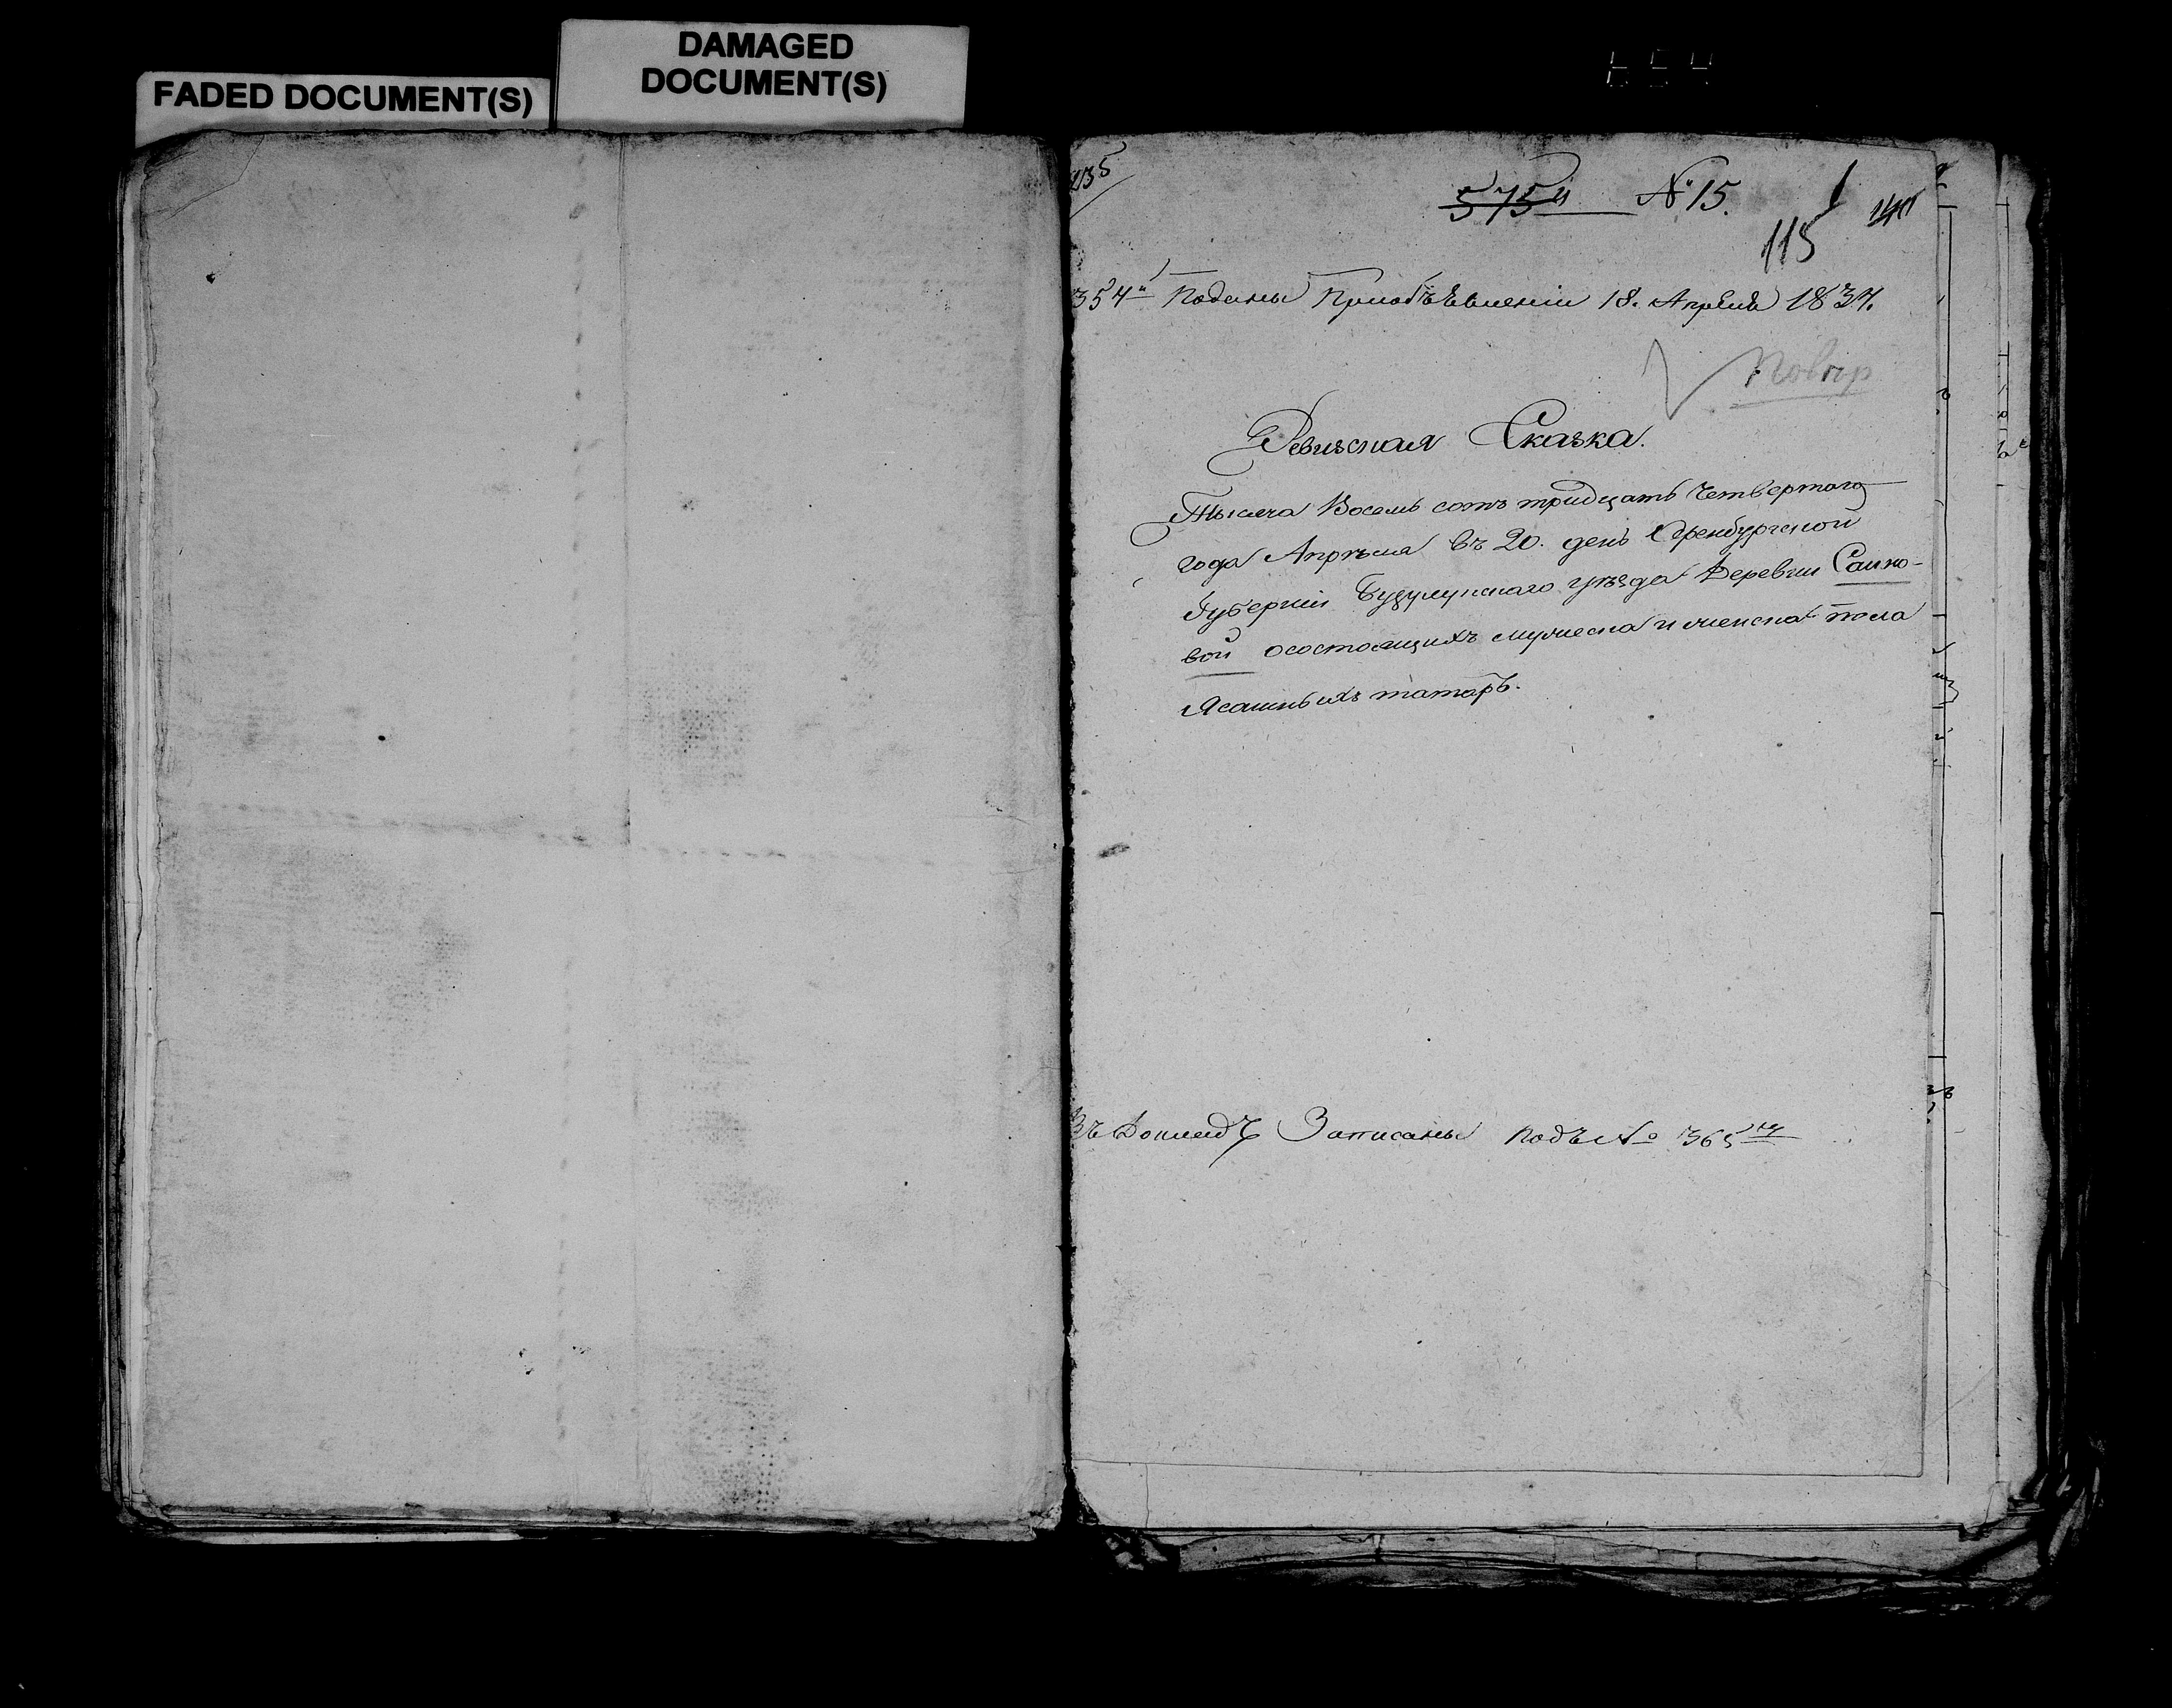 FADED DOCUMENT(S)
DAMAGED
DOCUMENT(S)
654
235
575й № 15.
115
354й Поданы Приобъявленіи 18. Апреля 1834.
Повтр
Ревизская Сказка.
Тысяча Восемь сотъ тридцать Четвертаго
года Апреля въ 20. день Оренбургской
Губерніи Бузулукскаго уезда Деревни Саино-
вой осостоящихъ мужеска и женска пола
Ясашныхъ татаръ.
Въ Докладъ Записаны подъ № 365